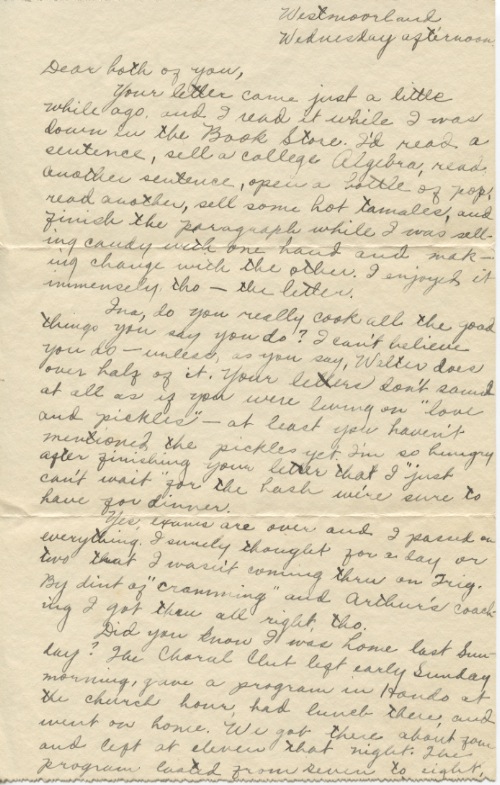 Westmoorland
Wednesday afternoon
Dear both of you,
Your letter came just a little
while ago, and I read it while I was
down in the Book Store. I'd read a
sentence, sell a college Algebra, read
another sentence, open a bottle of pop,
read another, sell some hot tamales, and
finish the paragraph while I was sell-
ing candy with one hand and mak-
ing change with the other. I enjoyed it
immensely, tho — the letter.
Ina, do you really cook all the good
things you say you do? I can't believe
you do — unless, as you say, Walter does
over half of it. Your letters don't sound
at all as if you were living on "love
and pickles" — at least you haven't
mentioned the pickles yet. I'm so hungry
after finishing your letter that I "just
can't wait" for the hash we're sure to
have for dinner.
Yes, exams are over and I passed on
everything. I surely thought for a day or
two that I wasn't coming thru on Trig.
By dint of "cramming" and Arthur's coach-
ing I got thru all right, tho.
Did you know I was home last Sun-
day? The Choral Club left early Sunday
morning, gave a program in Hondo at
the church hour, had lunch there, and
went on home. We got there about four
and left at eleven that night. The
program lasted from seven to eight,